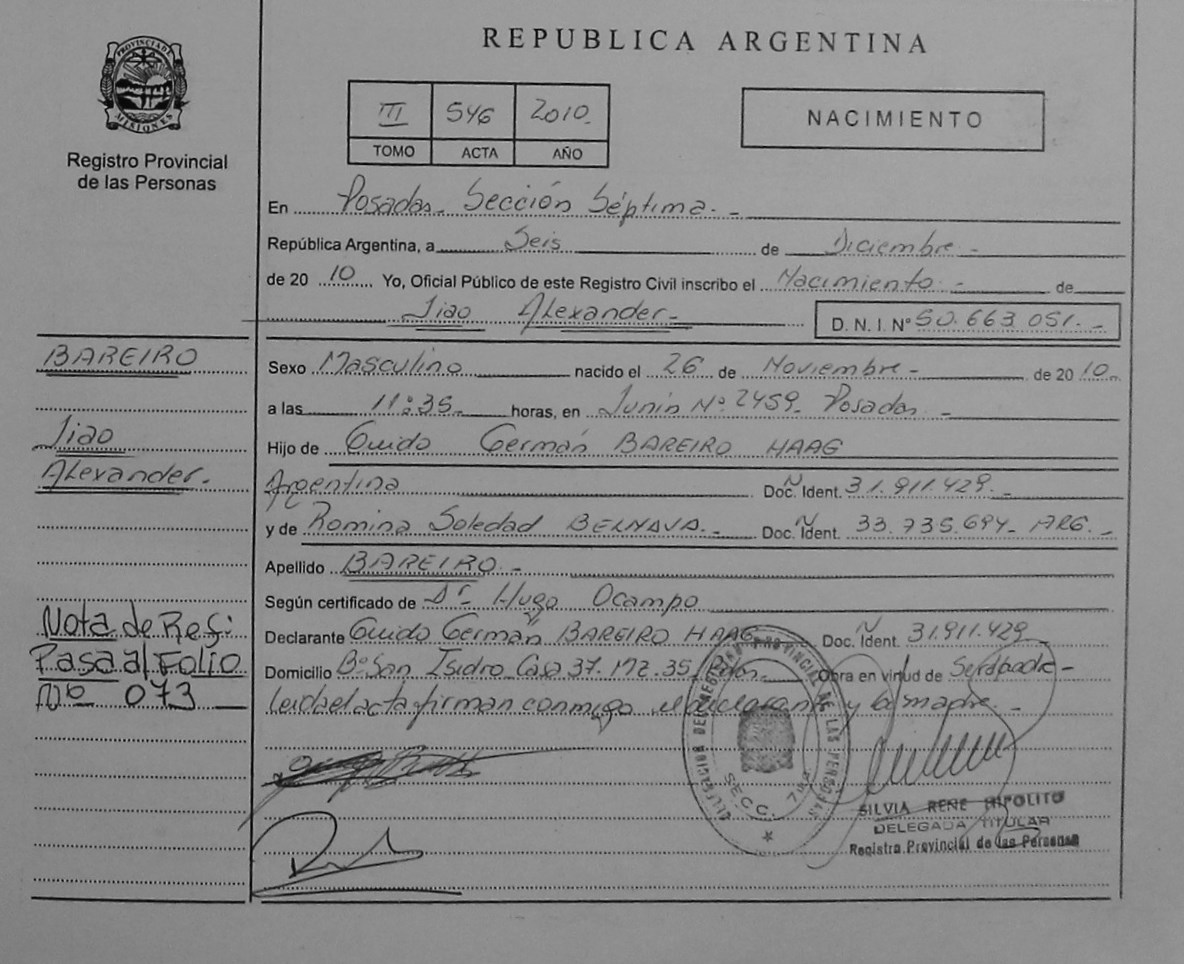 REPUBLICA ARGENTINA
PROVINCIA DE MISIONES
Registro Provincial
de las Personas
III 546 2010.
TOMO ACTA AÑO
NACIMIENTO
En Posadas. Sección Séptima. -
República Argentina, a Seis de Diciembre -
de 20 10 Yo, Oficial Público de este Registro Civil inscribo el Nacimiento. - de
Jiao Alexander. - D. N. I. Nº 50.663.051. -
BAREIRO
Jiao
Alexander. -
Nota de Ref:
Pasa al Folio
Nº 073
Sexo Masculino nacido el 26 de Noviembre - de 20 10.
a las 11:35. horas, en Junin Nº 2459. Posadas -
Hijo de Guido Germán BAREIRO HAAG
Argentina Doc. Ident. 31.911.429. -
y de Romina Soledad Doc. Ident. 33.735.694- ARG. -
Apellido BAREIRO. -
Según certificado de Dr. Hugo Ocampo
Declarante Guido Germán BAREIRO HAAG Doc. Ident. 31.911.429
Domicilio Bº San Isidro Casa 37. Mz. 35. Obra en virtud de Ser padre -
Leida el acta firman conmigo el declarante y la madre. -
SECC. 7ma
SILVIA RENE HIPOLITO
DELEGADA TITULAR
Registro Provincial de las Personas